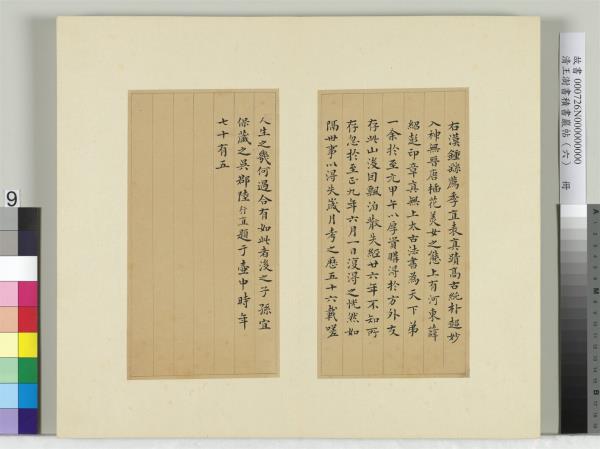 右漢鍾繇薦季直表真蹟高古純朴超妙
入神無晉唐插花美女之態上有河東薛
紹彭印章真無上太古法書為天下第
一余於至元甲午以厚資購得於方外友
存此山後因飄泊散失經廿六年不知所
存忽於至正九年六月一日復得之恍然如
隔世事以得失歲月考之歷五十六載嗟
人生之幾何遇合有如此者後之子孫宜
保藏之吳郡陸行直題于壺中時年
七十有五
故書 000726N000000000
清王澍書積書巖帖（六） 冊
9